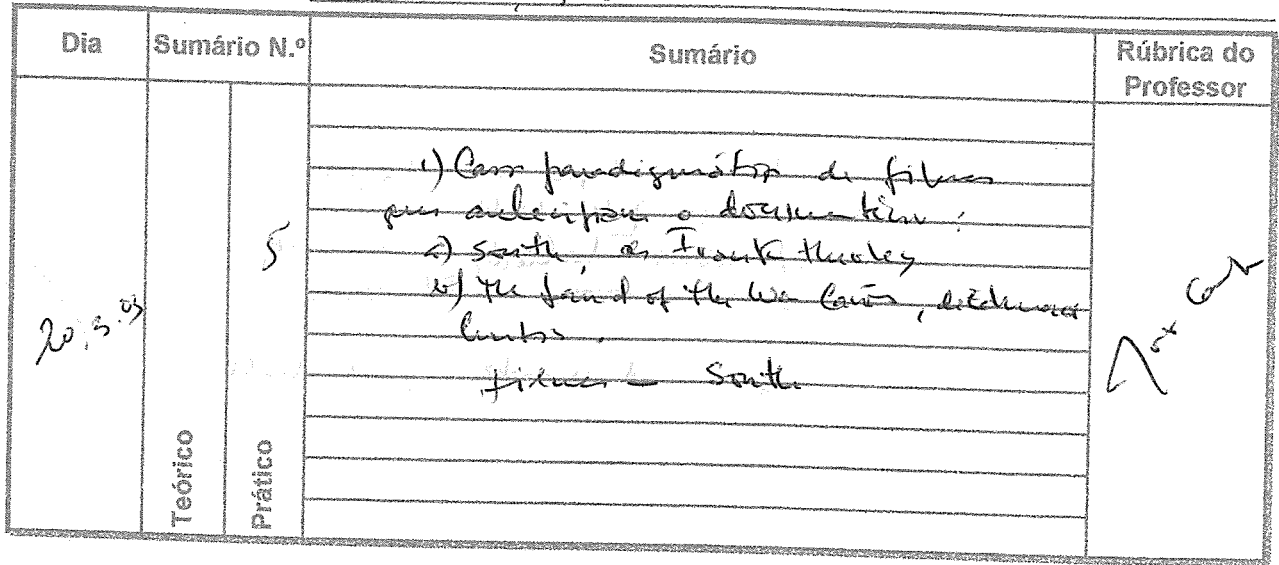 Dia Sumário N.º Sumário Rúbrica do Professor
Teórico Prático
20.3.03
5
1) Casos paradigmáticos de filmes
que antecipam o documentário:
a) South, de Frank Hurley
b) The land of the War Canoes, de Edward
Curtis.
Filmes - South